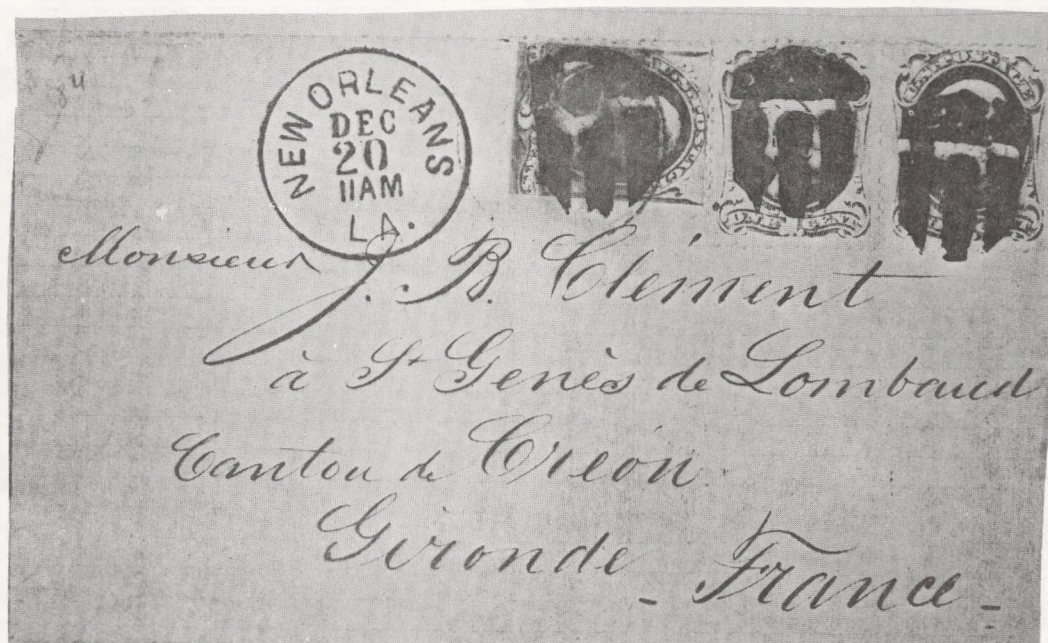 NEW ORLEANS
DEC
20
11AM
LA.
Monsieur J. B. Clément
à St Genès de Lombaud
Canton de Créon
Gironde - France -